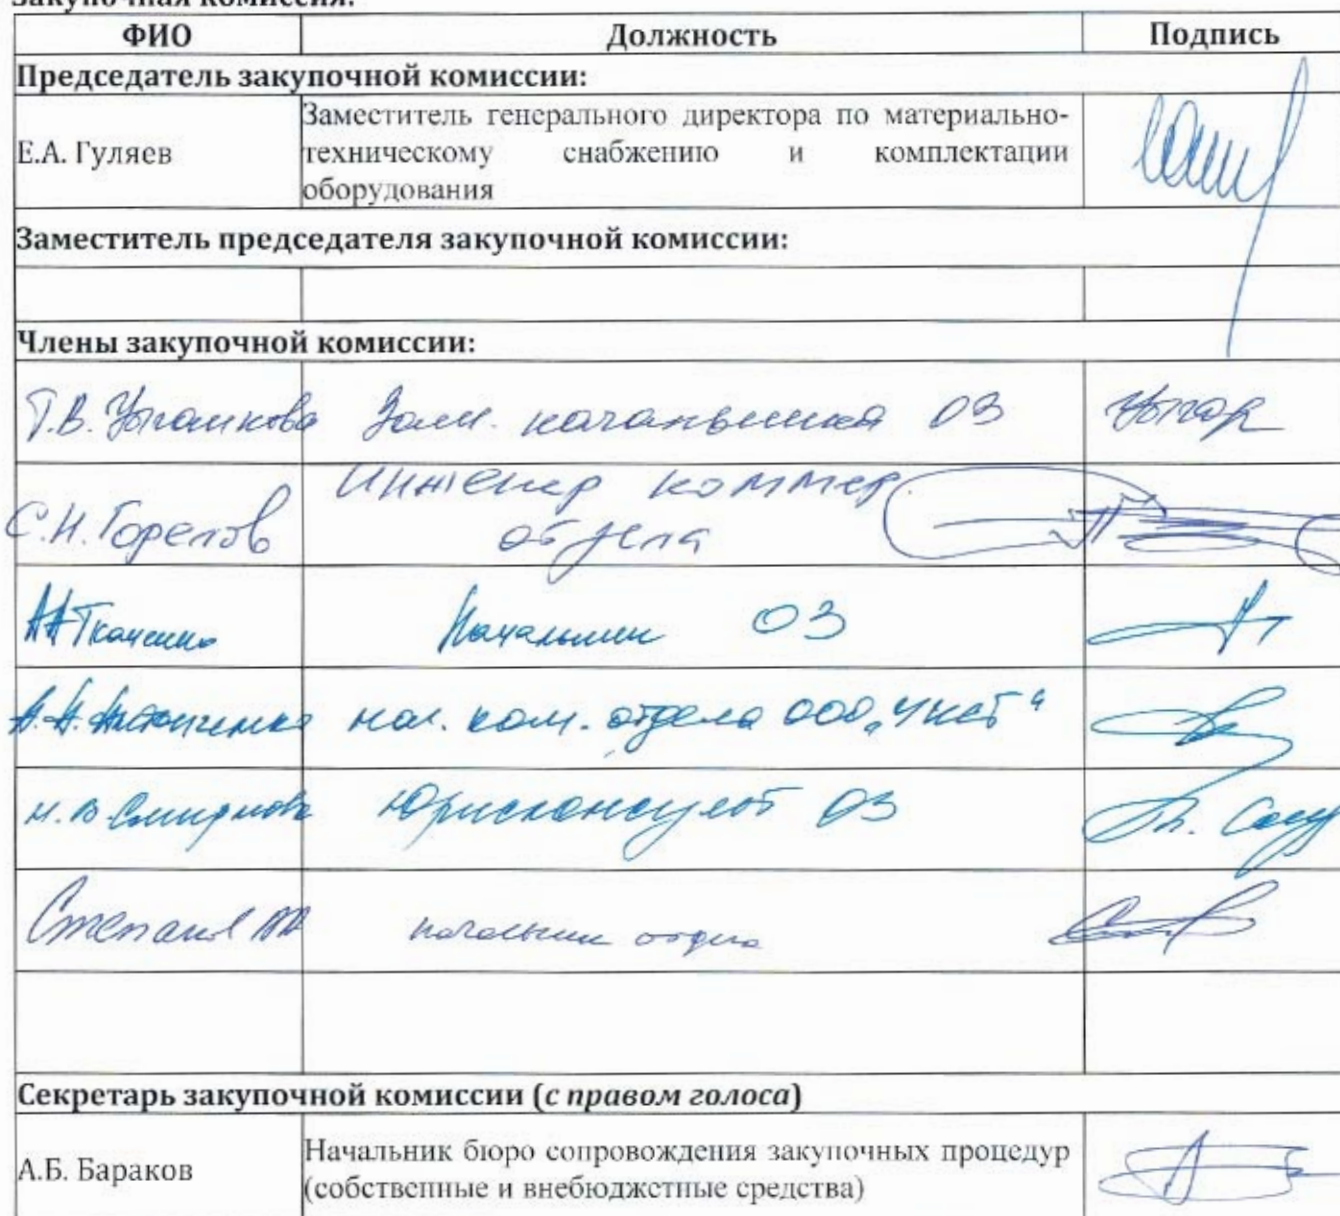 Закупочная комиссия:
ФИО Должность Подпись
Председатель закупочной комиссии:
Е.А. Гуляев
Заместитель генерального директора по материально-
техническому снабжению и комплектации
оборудования
Заместитель председателя закупочной комиссии:
Члены закупочной комиссии:
Т.В. Цыганкова Зам. начальника ОЗ
С.Н. Горелов Инженер коммер.
отдела
АА Ткаченко Начальник ОЗ
нач. ком. отдела ООО
Н.В. Смирнова Юрисконсульт ОЗ
Степанов начальник отдела
Секретарь закупочной комиссии (с правом голоса)
А.Б. Бараков
Начальник бюро сопровождения закупочных процедур
(собственные и внебюджетные средства)